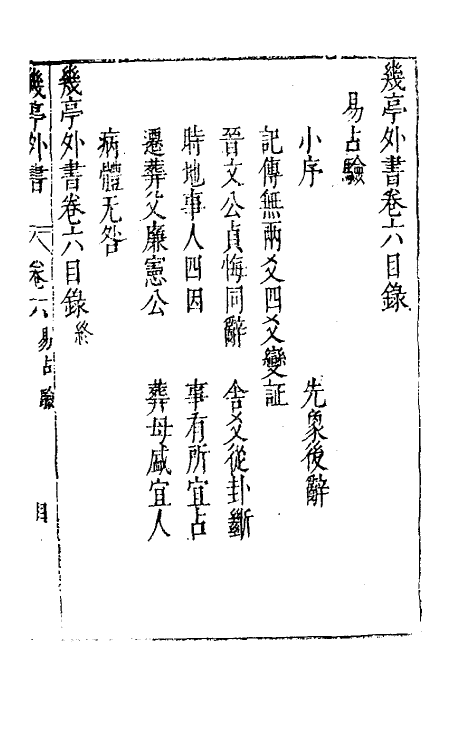 幾亭外書卷六目錄
易占驗
小序 先象後辭
記傳無兩爻四爻變証
晉文公貞悔同辭 舍爻從卦斷
時地事人四因 事有所宜占
遷葬父廉憲公 葬母戚宜人
病體无咎
幾亭外書卷六目錄終
幾亭外書 卷六 易占驗 目